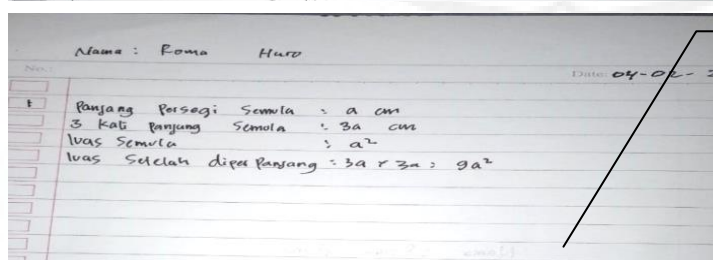 Nama : Roma Huro
No.:
Date: 04-02-
1 Panjang Persegi Semula : a cm
3 Kali Panjang Semula : 3a cm
luas Semula : a²
luas Setelah diper Panjang : 3a × 3a : 9a²